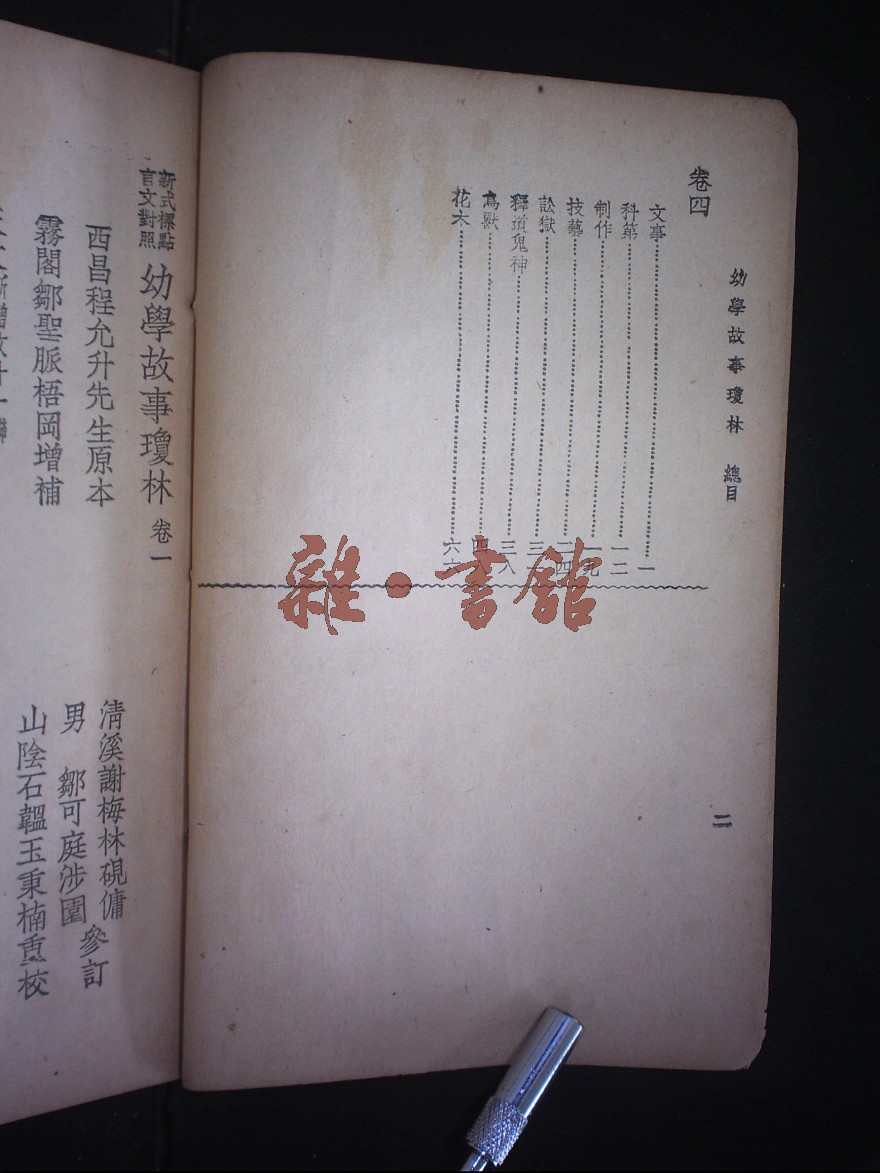 幼學故事瓊林　總目
二
卷四
文事……一
科第……一二
制作……一九
技藝……二四
訟獄……三一
釋道鬼神……三八
鳥獸……四
花木……六六
雜·書館
新式標點
言文對照
幼學故事瓊林 卷一
西昌程允升先生原本
霧閣鄒聖脈梧岡增補
清溪謝梅林硯傭
男　鄒可庭涉園
參訂
山陰石韞玉秉楠重校